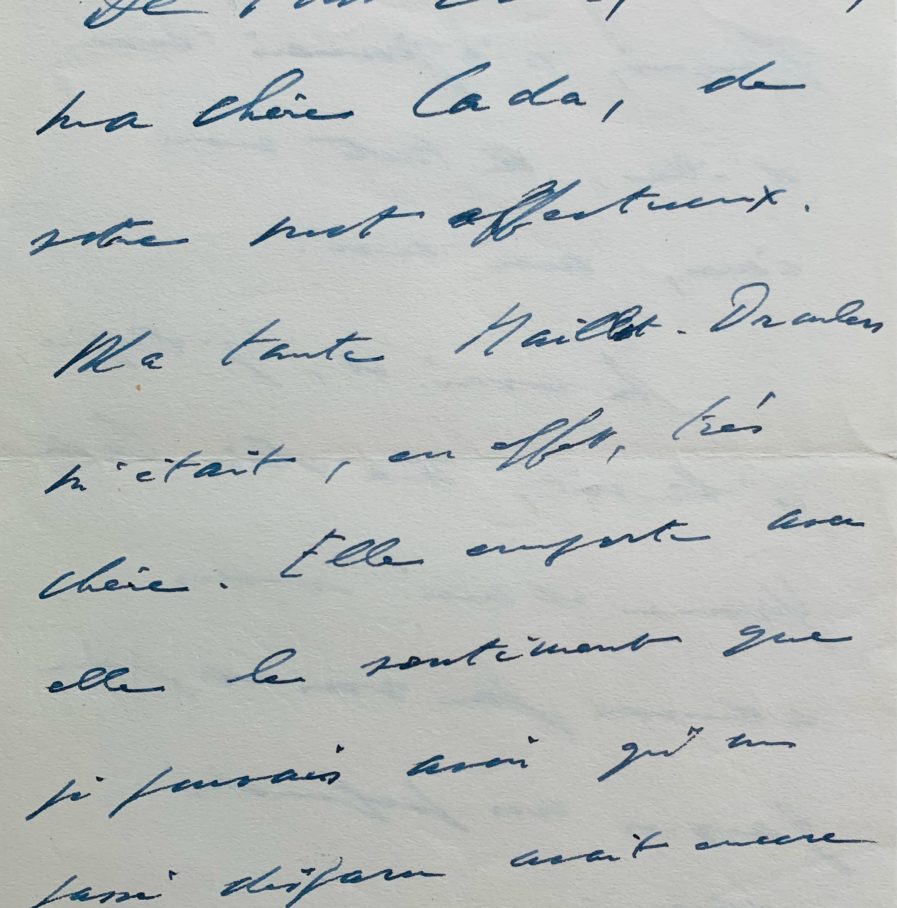 ma chère Cada, de
votre mot affectueux.
Ma tante Maillot-Droulers
m'était, en effet, très
chère. Elle emporte avec
elle le sentiment que
je pouvais avoir qu'un
passé disparu avait encore